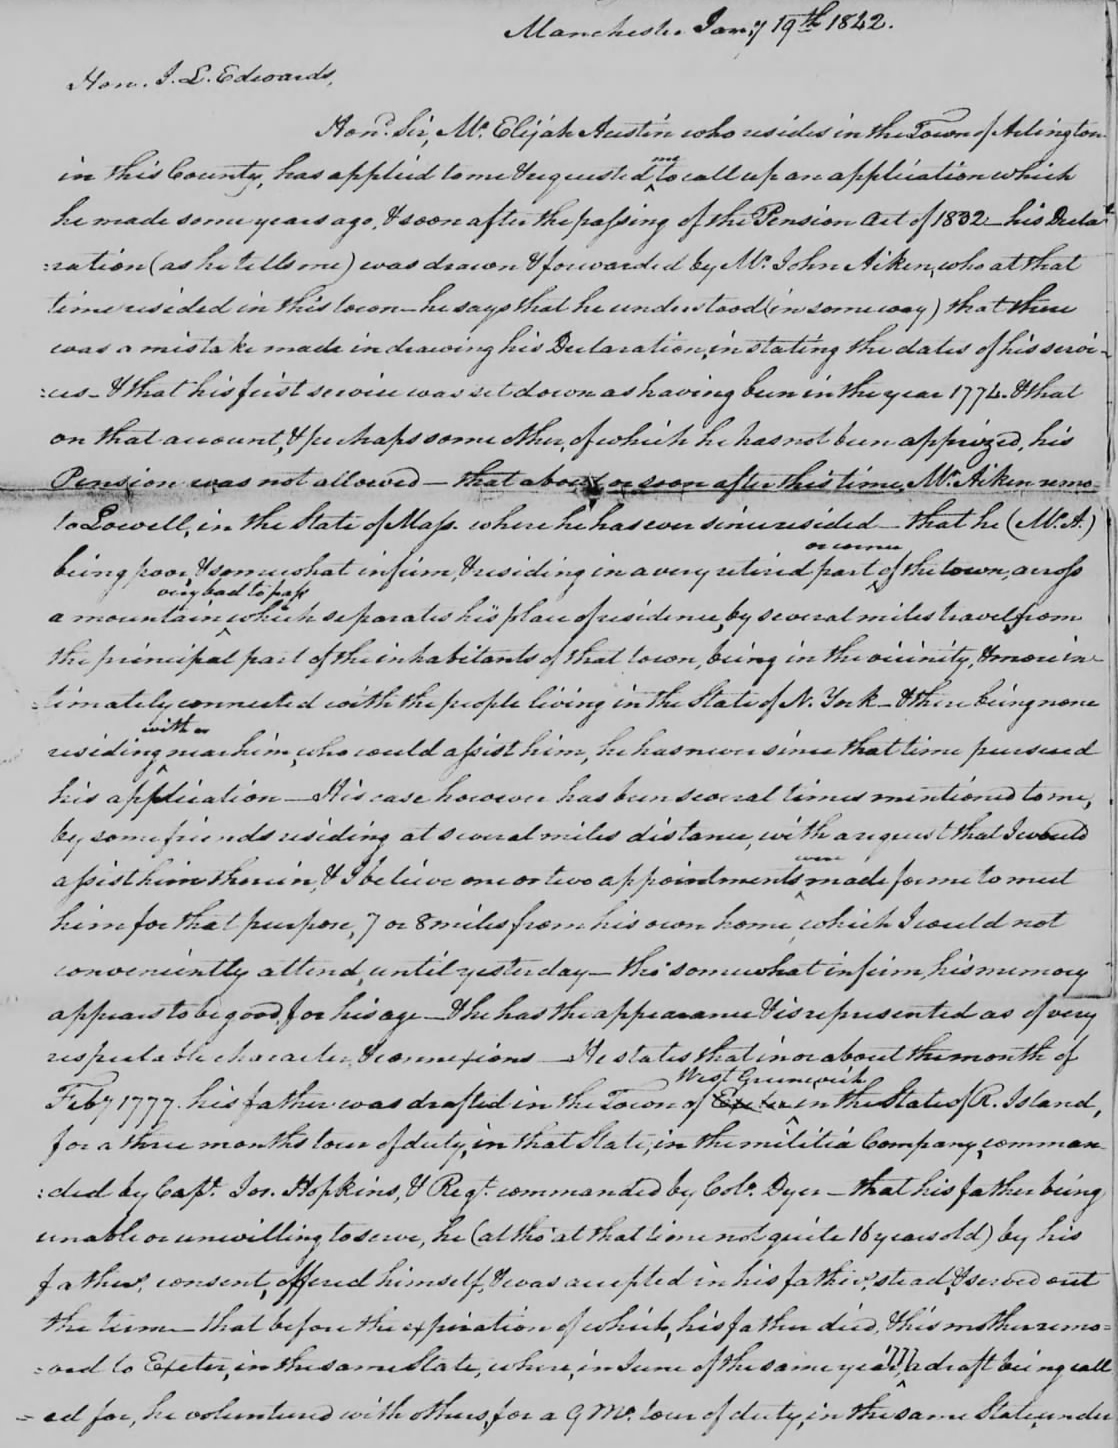 Manchester Jany 19th 1842.
Hon. J. L. Edwards,
Hond. Sir, Mr. Elijah Austin who resides in the Town of Arlington
in this County, has applied to me & requested me to call up an application which
he made some years ago, & soon after the passing of the Pension Act of 1832 – his Decla
:ration (as he tells me) was drawn & forwarded by Mr. John Aiken, who at that
time resided in this town – he says that he understood (in some way) that there
was a mistake made in drawing his Declaration, in stating the dates of his servi-
:ces – & that his first service was set down as having been in the year 1774. & that
on that account, & perhaps some other, of which he has not been apprized, his
Pension was not allowed – that about or soon after this time, Mr. Aiken remo-
to Lowell, in the State of Mass. where he has ever since resided – that he (Mr. A.)
being poor, & somewhat infirm, & residing in a very retired part or corner of the town, across
a mountain very bad to pass which separates his place of residence, by several miles travel, from
the principal part of the inhabitants of that town, being in the vicinity, & more in-
-timately connected with the people living in the State of N. York – & there being none
residing with or near him, who could assist him, he has never since that time pursued
his application – His case however has been several times mentioned to me,
by some friends residing at several miles distance, with a request that I would
assist him therein, & I believe one or two appointments were made for me to meet
him for that purpose, 7 or 8 miles from his own home, which I could not
conveniently attend, until yesterday – tho' somewhat infirm, his memory
appears to be good, for his age – & he has the appearance & is represented as of very
respectable character, & connexions – He states that in or about the month of
Feby 1777. his father was drafted in the Town of Exeter West Greenwich in the State of R. Island,
for a three months tour of duty, in that State, in the militia Company, comman
:ded by Capt. Jos. Hopkins, & Regt. commanded by Colo. Dyer – that his father being
unable or unwilling to serve, he (altho' at that time not quite 16 years old) by his
father's consent, offered himself, & was accepted in his father's stead, & served out
the term – that before the expiration of which, his father died, & his mother remo=
=ved to Exeter, in the same State, where, in June of the same year, 1777, a draft being call
=ed for, he volunteered with others, for a 9 Mo. tour of duty, in the same State, under